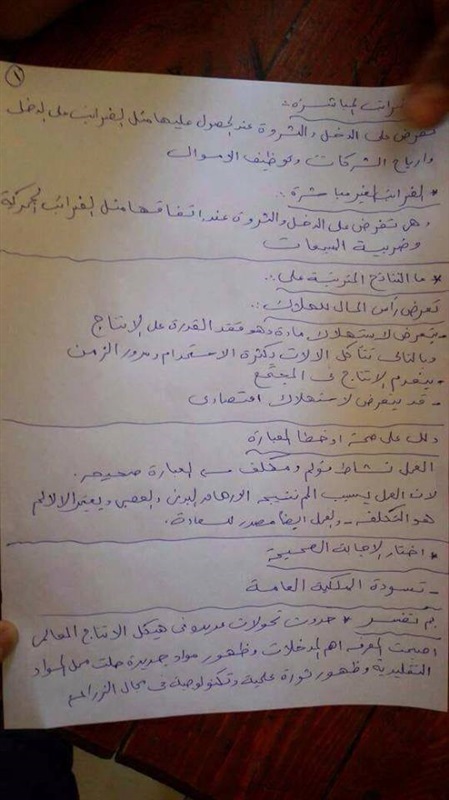 ١
الضرائب المباشرة :-
تفرض على الدخل والثروة عند الحصول عليها مثل الضرائب على الدخل
وارباح الشركات وتوظيف الاموال
* الضرائب الغير مباشرة :-
وهى تفرض على الدخل والثروة عند انفاقها مثل الضرائب الجمركية
وضريبة المبيعات
* ما النتائج المترتبة على :.
تعرض رأس المال للهلاك :.
- يتعرض لاستهلاك مادة وهو فقد القدرة على الإنتاج
وبالتالى تتآكل الالات وكثرة الاستخدام ومرور الزمن
- ينعدم الإنتاج فى المجتمع
- قد يتعرض لاستهلاك اقتصادى
دلل على صحة او خطأ العبارة
العمل نشاط مؤلم ومكلف العبارة صحيحه .
لان العمل يسبب الم نتيجة الارهاق البدنى والعصبى ويعتبر الالم
هو التكلفه - والعمل ايضا مصدر للسعادة.
* اختار الإجابة الصحيحة
- تسودة الملكية العامة
بم تفسر * حدوث تحولات عديده فى هيكل الانتاج العالمى
اصبحت المعرفه اهم المدخلات وظهور مواد جديدة حلت محل المواد
التقليدية وظهور ثورة علمية وتكنولوجية فى مجال الزراعة